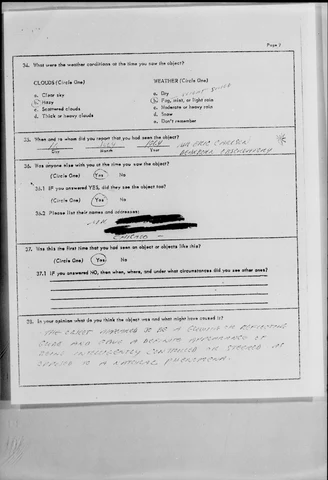 Page 7
34. What were the weather conditions at the time you saw the object?
CLOUDS (Circle One)
WEATHER (Circle One)
a. Clear sky
b. Hazy
c. Scattered clouds
d. Thick or heavy clouds
a. Dry
b. Fog, mist, or light rain
c. Moderate or heavy rain
d. Snow
e. Don't remember
35. When and to whom did you report that you had seen the object?
Day Month Year
36. Was anyone else with you at the time you saw the object?
(Circle One) Yes No
36.1 IF you answered YES, did they see the object too?
(Circle One) Yes No
36.2 Please list their names and addresses:
CHICAGO
37. Was this the first time that you had seen an object or objects like this?
(Circle One) Yes No
37.1 IF you answered NO, then when, where, and under what circumstances did you see other ones?
38. In your opinion what do you think the object was and what might have caused it?
THE OBJECT APPEARED TO BE A GLOWING OR REFLECTING
A DEFINITE APPEARANCE OF
BEING INTELLIGENTLY CONTROLLED OR STEERED AS
OPPOSED TO A NATURAL PHENOMENA.